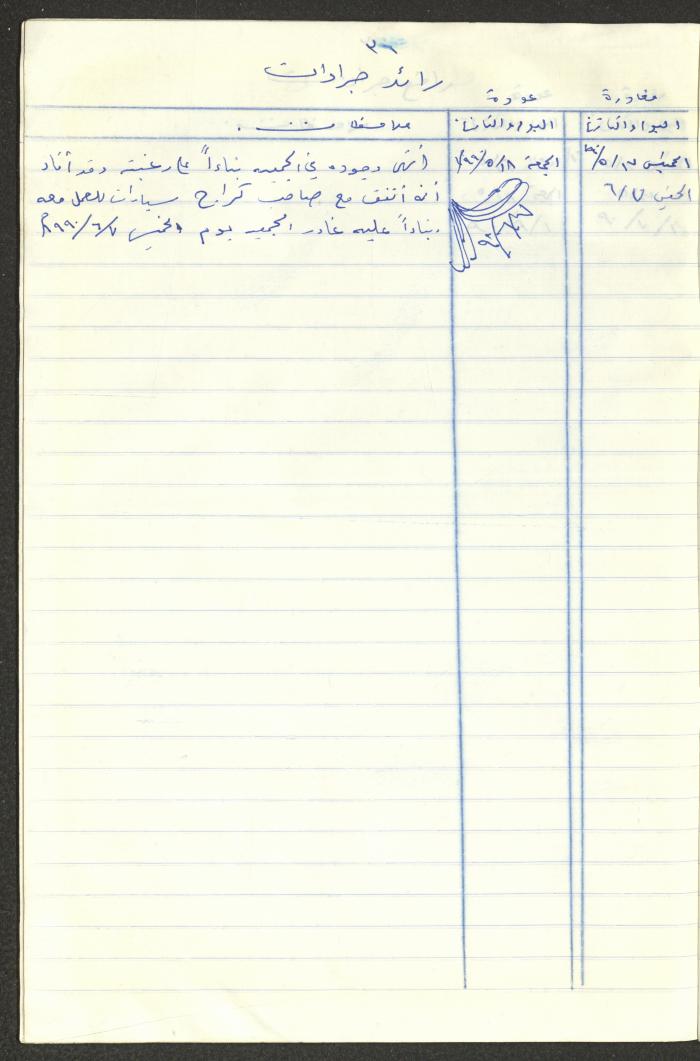 ٣٦
رائد جرادات
مغادرة
عودة
اليوم والتاريخ
اليوم والتاريخ
ملاحظات
الخميس ١٧/٥/٩٠
الجمعة ١٨/٥/٩٠
أنهى وجوده في الجمعيه بناءاً على رغبته وقد أفاد
الخميس ٦/٧
أنه أتفق مع صاحب كراج سيارات للعمل معه
وبناءاً عليه غادر الجمعيه يوم الخميس ٧/٦/١٩٩٠م